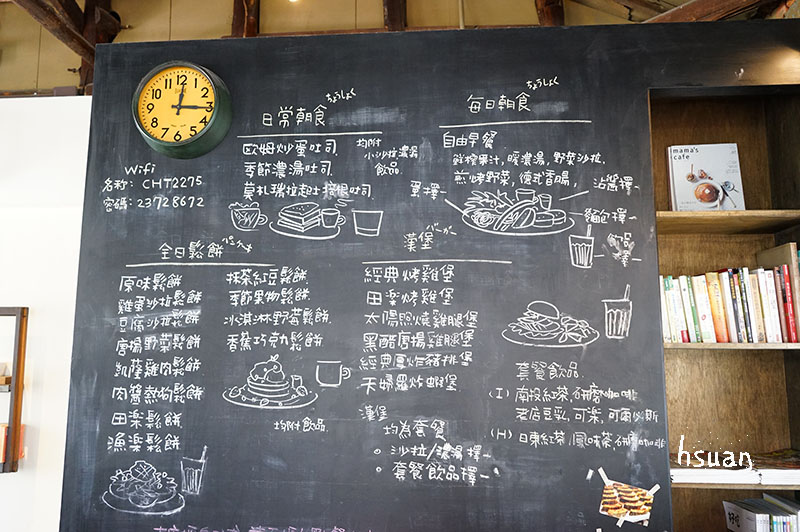 Wifi
名稱: CHT2275
密碼: 23728672
日常朝食
ちょうしょく
歐姆炒蛋吐司.
季節濃湯吐司.
莫札瑞拉起士培根吐司.
均附
小沙拉濃湯
飲品.
每日朝食
ちょうしょく
自由早餐
鮮榨果汁, 暖濃湯, 野菜沙拉.
煎烤野菜, 德式香腸,
沾醬擇一
蛋擇一
麵包擇一
飲品
擇一
全日鬆餅
原味鬆餅
雞蛋沙拉鬆餅
豆腐沙拉鬆餅
唐揚野菜鬆餅
凱薩雞肉鬆餅
肉醬熱狗鬆餅
田楽鬆餅
漁楽鬆餅
抹茶紅豆鬆餅
季節果物鬆餅
冰淇淋野莓鬆餅
香蕉巧克力鬆餅
均附飲品.
漢堡
バーガー
經典烤雞堡
田楽烤雞堡
太陽照燒雞腿堡
黑醋唐揚雞腿堡
經典厚炸豬排堡
天婦羅炸蝦堡
漢堡
均為套餐
。沙拉/濃湯擇一
。套餐飲品擇一
套餐飲品
(I) 南投紅茶, 研磨咖啡
老店豆乳, 可樂, 可爾必斯
(H) 日東紅茶, 風味茶, 研磨咖啡
mama's
café
hsuan